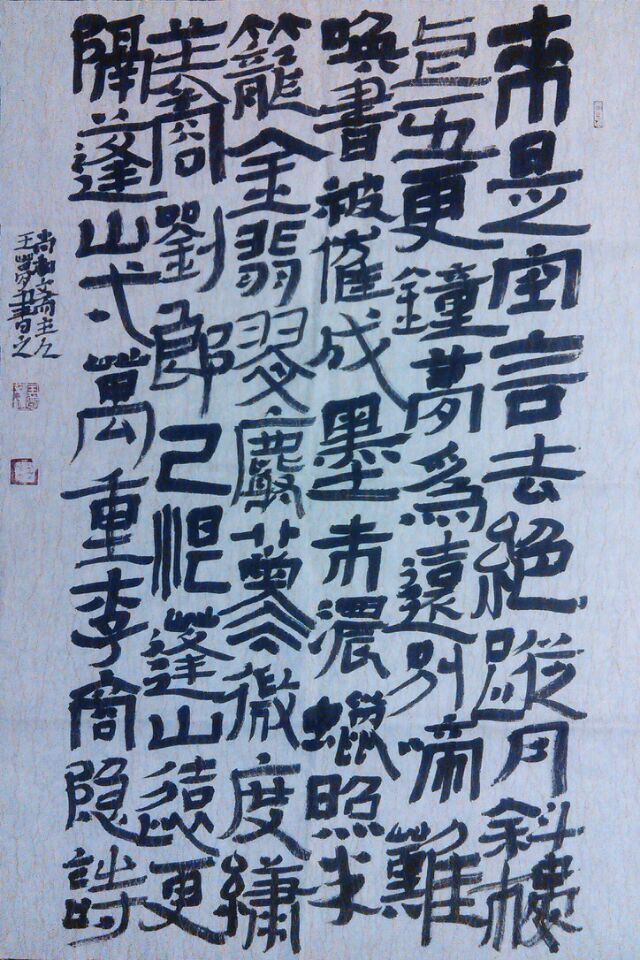 來是空言去絕蹤月斜樓
上五更鐘夢爲遠別啼難
喚書被催成墨未濃蠟照半
籠金翡翠麝薰微度繡
芙蓉劉郎已恨蓬山遠更
隔蓬山弌萬重李商隱詩
尚齋主人
王夢書之